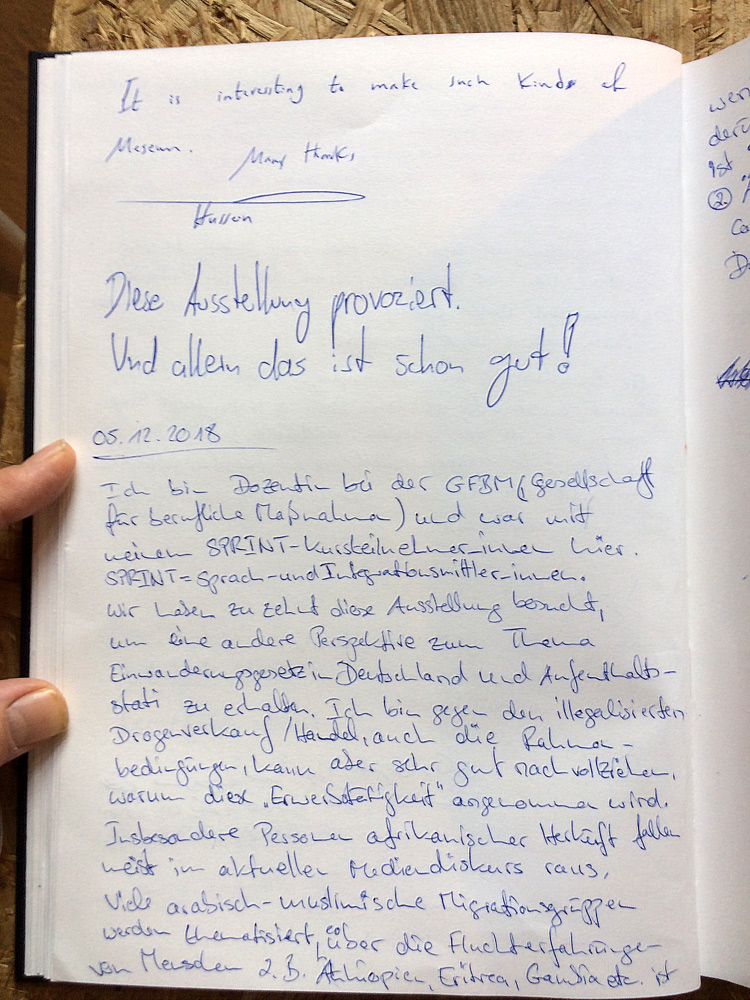 It is interesting to make such Kinds of
Meseum. Many thanks,
Husson
Diese Ausstellung provoziert.
Und allein das ist schon gut!
05.12.2018
Ich bin Dozentin bei der GFBM (Gesellschaft
für berufliche Maßnahmen) und war mit
meinem SPRINT-Kursteilnehmer_innen hier.
SPRINT = Sprach- und Integrationsmittler_innen.
Wir haben zu zehnt diese Ausstellung besucht,
um eine andere Perspektive zum Thema
Einwanderungsgesetz in Deutschland und Aufenthalts-
stati zu erhalten. Ich bin gegen den illegalisierten
Drogenverkauf/Handel, auch die Rahmen-
bedingungen, kann aber sehr gut nachvollziehen,
warum diese "Erwerbstätigkeit" angenommen wird.
Insbesondere Personen afrikanischer Herkunft fallen
meist im aktuellen Mediendiskurs raus.
Viele arabisch-muslimische Migrationsgruppen
werden thematisiert, über die Fluchterfahrungen
von Menschen z.B. Äthiopien, Eritrea, Gambia etc. ist
wen
ist
2.